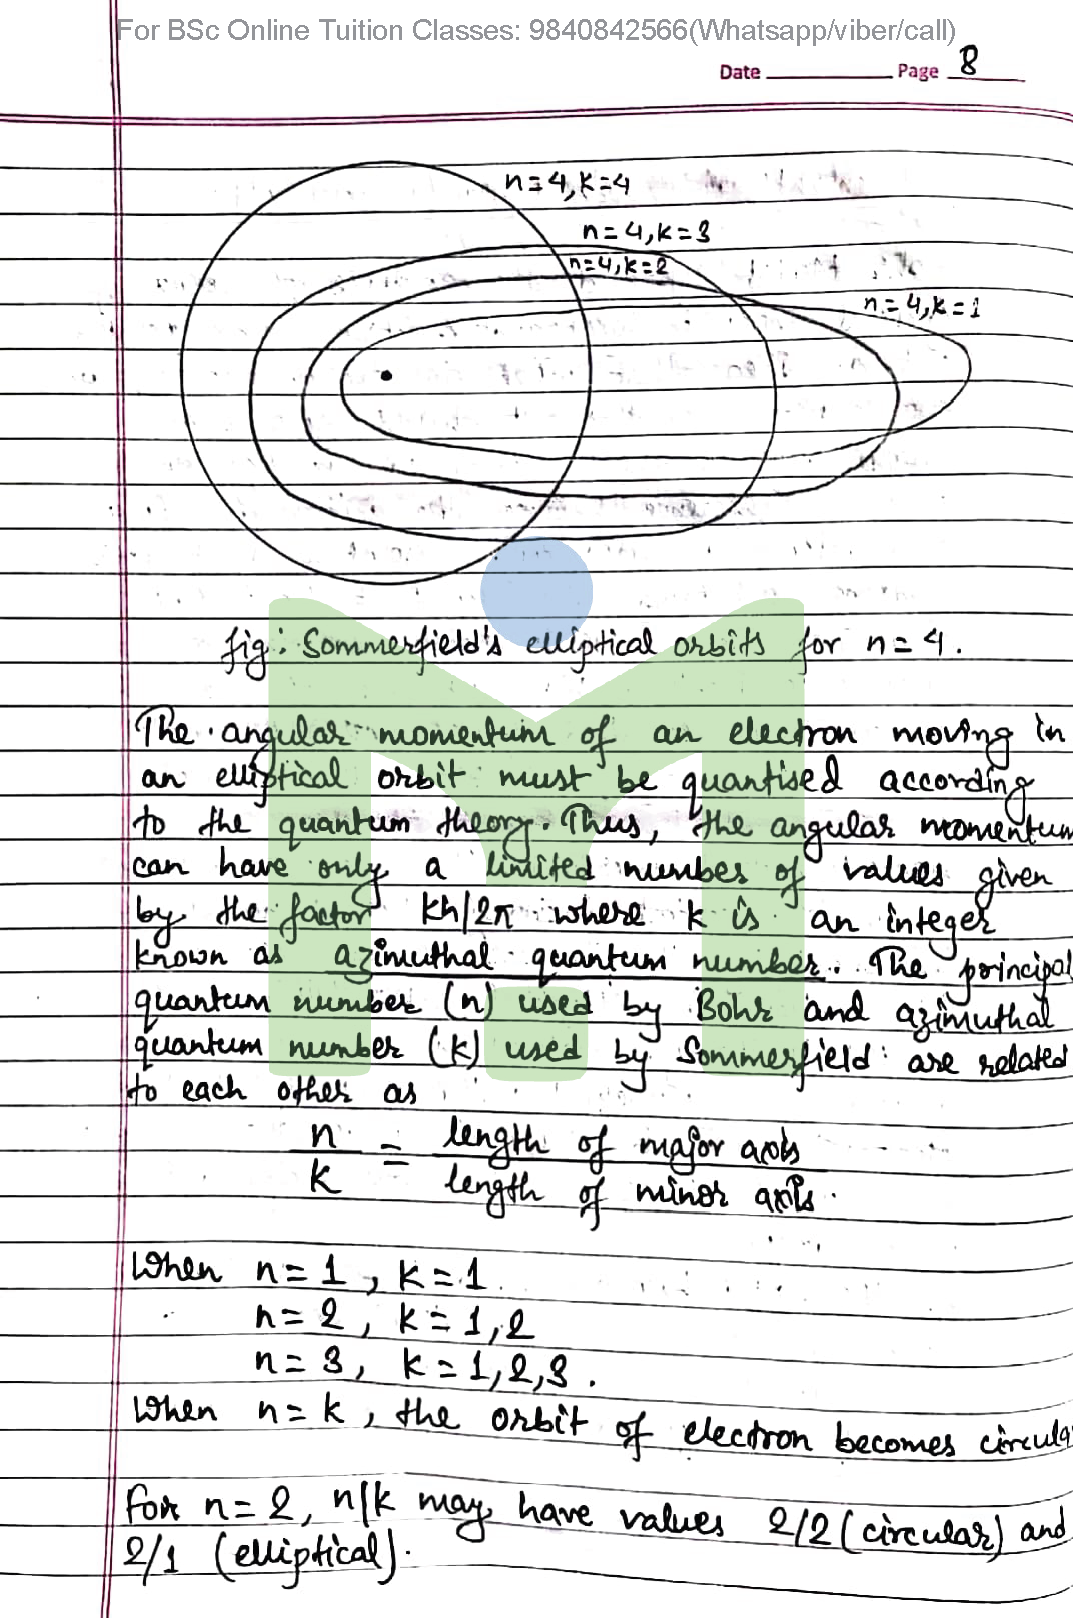 For BSc Online Tuition Classes: 9840842566(Whatsapp/viber/call)
Date Page 8
n=4, k=4
n=4, k=3
n=4, k=2
n=4, k=1
fig: Sommerfield's elliptical orbits for n=4.
The angular momentum of an electron moving in
an elliptical orbit must be quantised according
to the quantum theory. Thus, the angular momentum
can have only a limited number of values given
by the factor kh/2π where k is an integer
known as azimuthal quantum number. The principal
quantum number (n) used by Bohr and azimuthal
quantum number (k) used by Sommerfield are related
to each other as
n/k = length of major axis / length of minor axis.
When n=1, k=1.
n=2, k=1,2
n=3, k=1,2,3.
When n=k, the orbit of electron becomes circula
For n=2, n/k may have values 2/2 (circular) and
2/1 (elliptical).